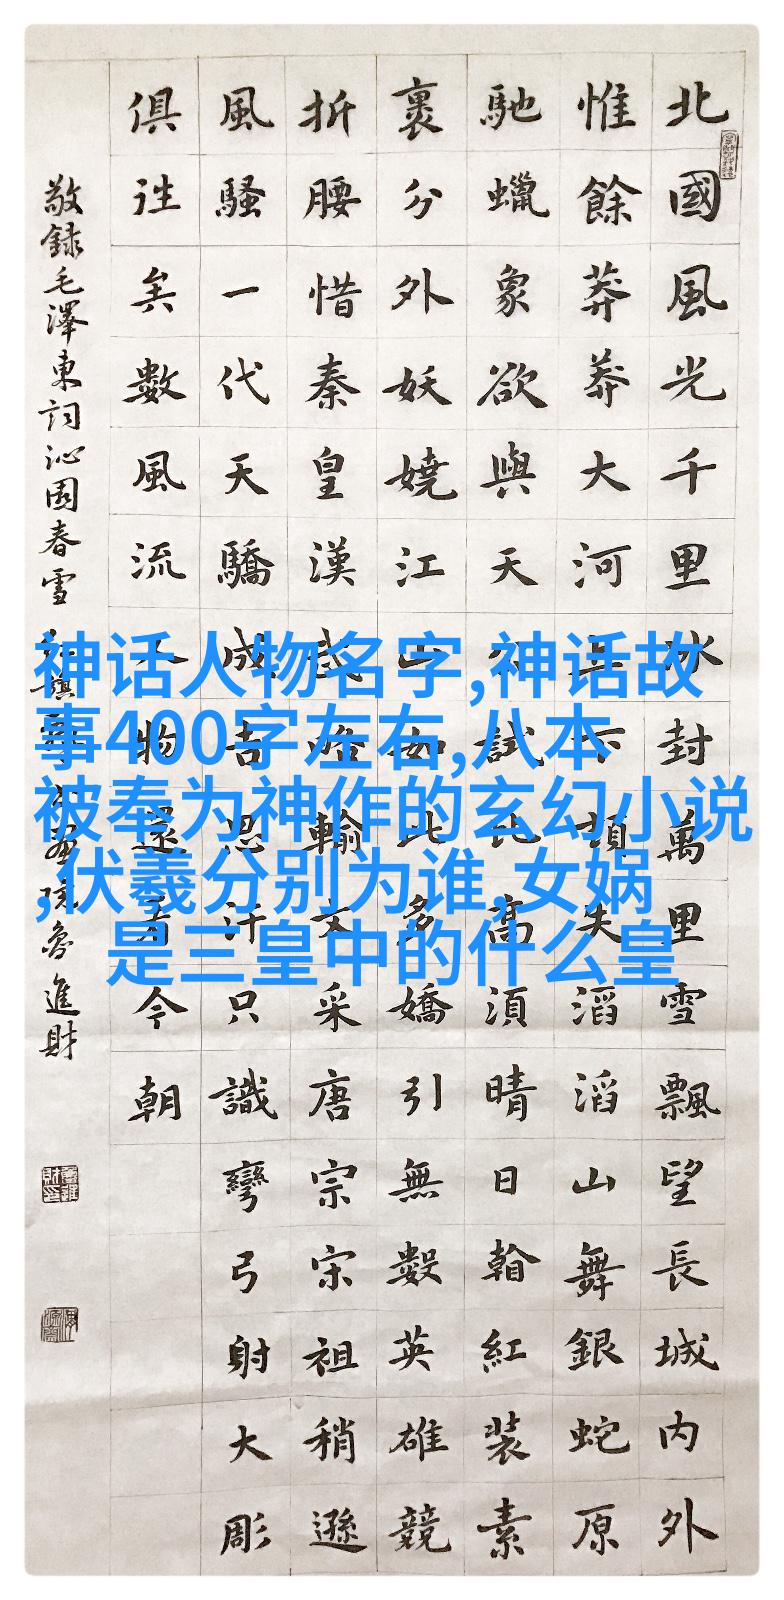 北國風光千里冰封萬里雪飄望長城内外
惟餘莽莽大河上下頓失滔滔山舞銀蛇原
馳蠟象欲與天公試比高須晴日翰紅裝素
裹分外妖嬈江山如此多嬌引無數英雄競
折腰惜秦皇漢武略輸文采唐宗宋祖稍遜
風騷一代天驕成吉思汗只識彎弓射大彫
俱往矣數風流人物還看今朝
敬録毛澤東詞沁園春雪 院魯進財
神话人物名字,神话故
事400字左右,八本
被奉为神作的玄幻小说
,伏羲分别为谁,女娲
是三皇中的什么皇